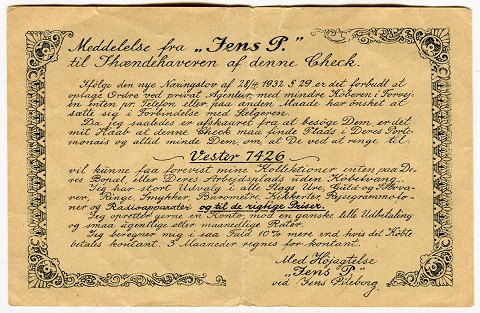 Meddelelse fra „Jens P."
til Ihændehaveren af denne Check.
Ifølge den nye Næringslov af 28/4 1932 § 29 er det forbudt at
optage Ordre ved privat Agentur med mindre Køberen i Forvej-
en enten pr. Telefon eller paa anden Maade har ønsket at
sætte sig i Forbindelse med Sælgeren.
Da jeg saaledes er afskaaret fra at besøge Dem er det
mit Haab at denne Check maa finde Plads i Deres Porte-
monnais og altid minde Dem om, at De ved at ringe til
Vester 7426
vil kunne faa forevist mine Kollektioner enten paa De-
res Bopæl eller Deres Arbejdsplads uden Købetvang.
Jeg har stort Udvalg i alle Slags Ure, Guld og Sølvva-
rer, Ringe, Smykker, Barometre, Kikkerter, Rejsegrammofo-
ner og Radioapparater og til de rigtige Priser.
Jeg opretter gerne en Konto, mod en ganske lille Udbetaling
og smaa ugentlige eller maanedlige Rater.
Jeg beregner mig i saa Fald 10% mere end hvis det Købte
betales kontant. 3 Maaneder regnes for kontant.
Med Højagtelse
„Jens P"
ved Jens Pileborg